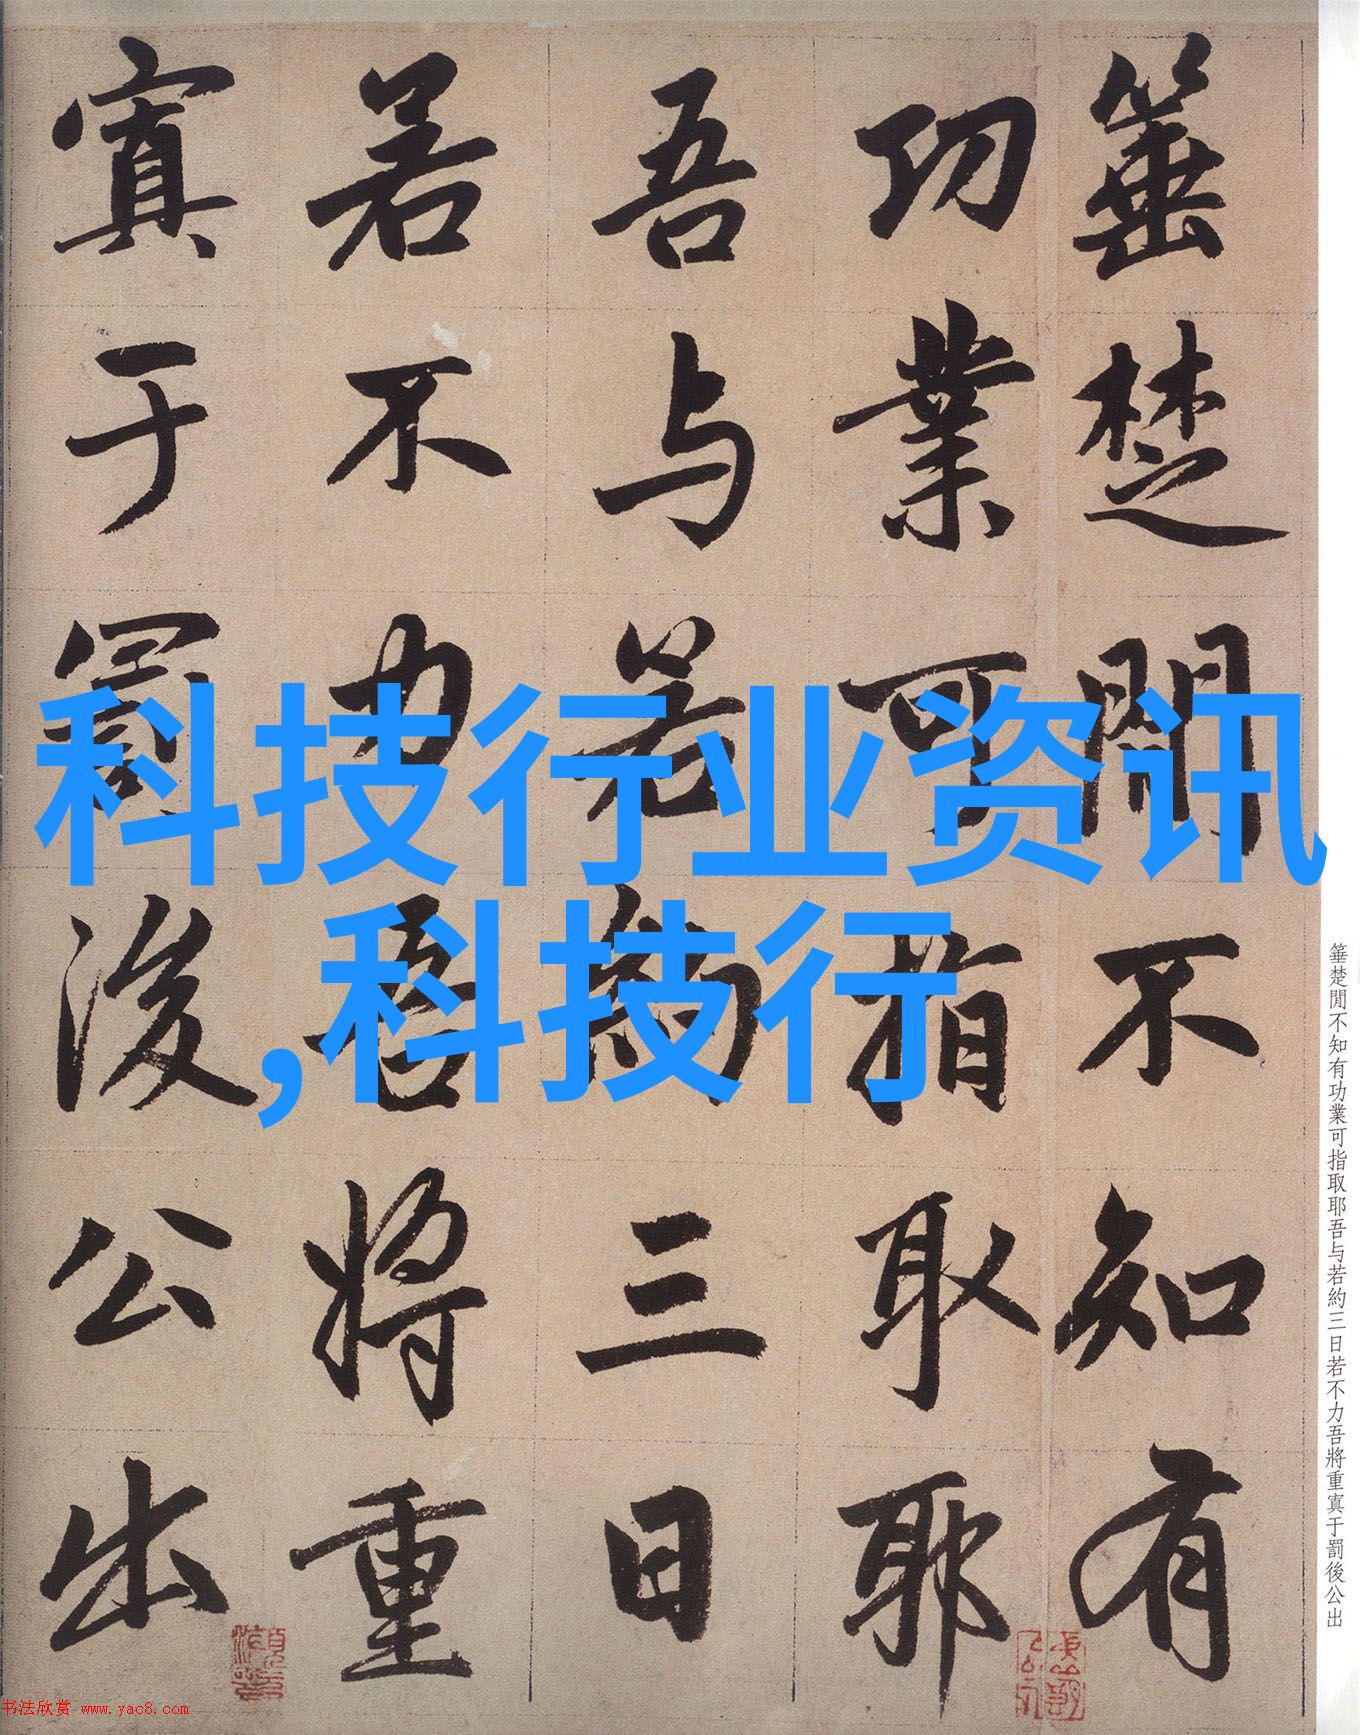 箠楚閒不知有
功業可指取耶
吾与若約三日
若不力吾將重
寘于罰後公出
科技行业资讯
,科技行
箠楚閒不知有功業可指取耶吾与若約三日若不力吾將重寘于罰後公出
书法欣赏 www.yac8.com